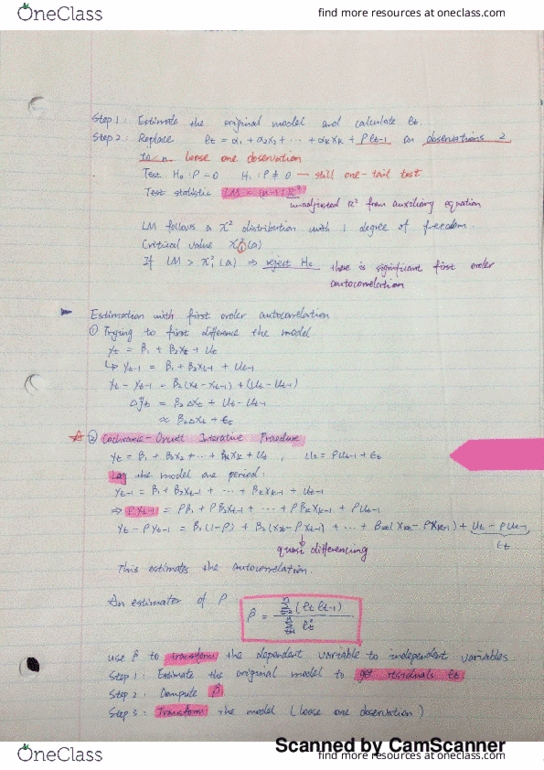 OneClass
find more resources at oneclass.com
Step 1: Estimate the original model and calculate et.
Step 2: Replace et = α1 + α2x2 + ... + αkxk + ρet-1 on observations 2
to n loose one observation
Test H0: ρ = 0 H1: ρ ≠ 0 — still one-tail test
Test statistic LM = (n-1) R²
unadjusted R² from auxiliary equation
LM follows a χ² distribution with 1 degree of freedom.
Critical value χ²1(α)
If LM > χ²1(α) ⇒ reject H0 there is significant first order
autocorrelation
Estimation with first order autocorrelation
① Trying to first difference the model
yt = β1 + β2xt + ut
↳ yt-1 = β1 + β2xt-1 + ut-1
yt - yt-1 = β2(xt - xt-1) + (ut - ut-1)
Δyt = β2Δxt + ut - ut-1
∝ β2Δxt + εt
② Cochrane-Orcutt Iterative Procedure
yt = β1 + β2x2 + ... + βkxk + ut , ut = ρut-1 + εt
Lag the model one period.
yt-1 = β1 + β2xt-1 + ... + βkxk-1 + ut-1
⇒ ρyt-1 = ρβ1 + ρβ2xt-1 + ... + ρβkxk-1 + ρut-1
quasi differencing
εt
This estimates the autocorrelation.
An estimator of ρ
use ρ̂ to transform the dependent variable to independent variables
Step 1: Estimate the original model to get residuals et
Step 2: Compute ρ̂
Step 3: Transform the model (loose one observation)
Scanned by CamScanner
OneClass
find more resources at oneclass.com